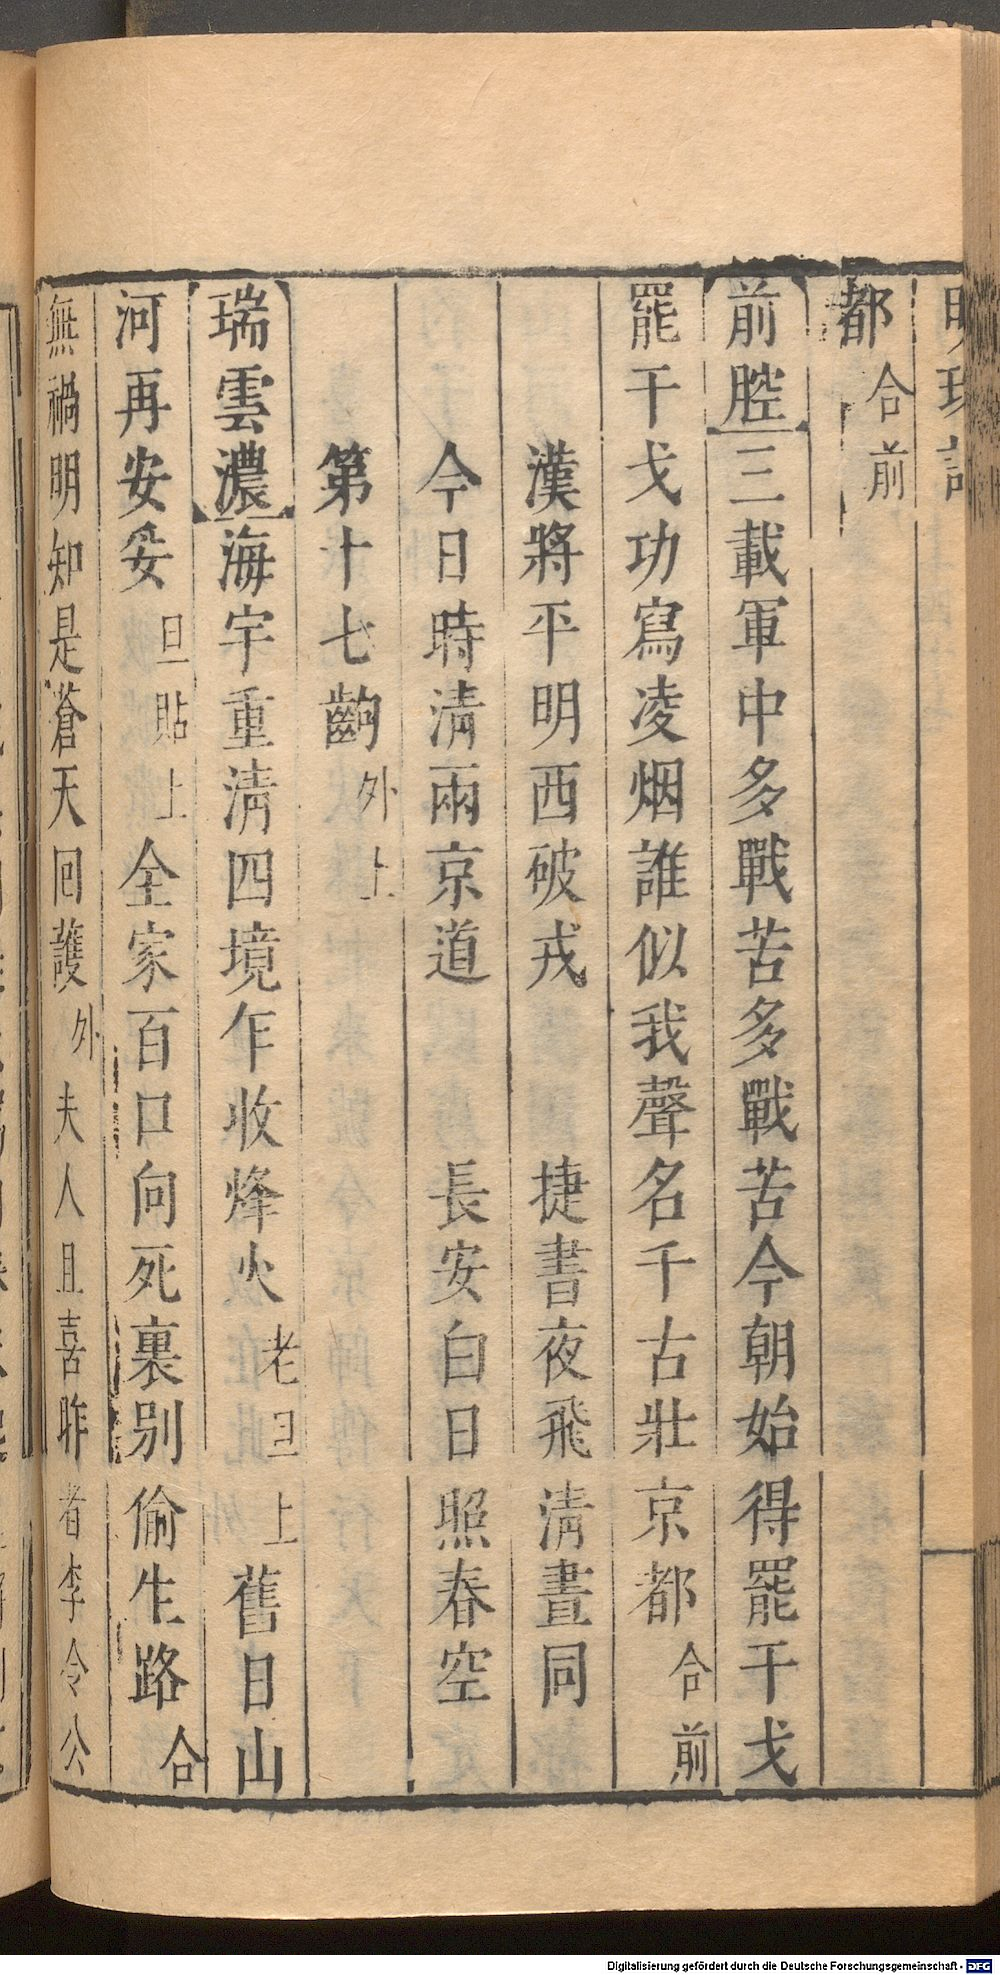 明珠記
都合前
前腔三載軍中多戰苦多戰苦今朝始得罷干戈
罷干戈功寫凌烟誰似我聲名千古壯京都合前
漢將平明西破戎 捷書夜飛清晝同
今日時清兩京道 長安白日照春空
第十七齣外上
瑞雲濃海宇重清四境乍收烽火老旦上舊日山
河再安妥旦貼上全家百口向死裏別偷生路合
無禍明知是蒼天回護外夫人且喜昨者李令公
Digitalisierung gefördert durch die Deutsche Forschungsgemeinschaft - DFG